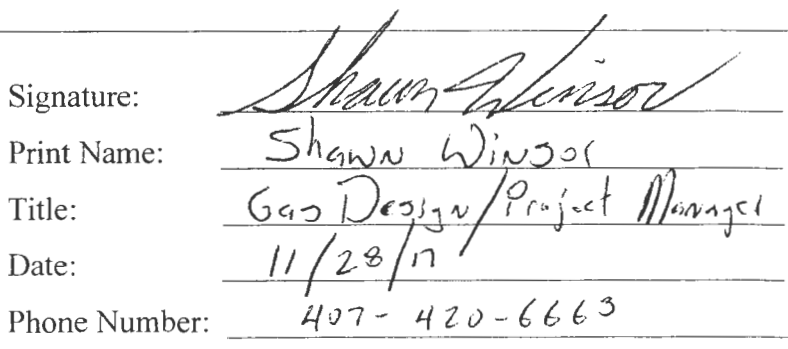 Signature: Shawn Winsor
Print Name: Shawn Winsor
Title: Gas Design/Project Manager
Date: 11/28/17
Phone Number: 407-420-6663